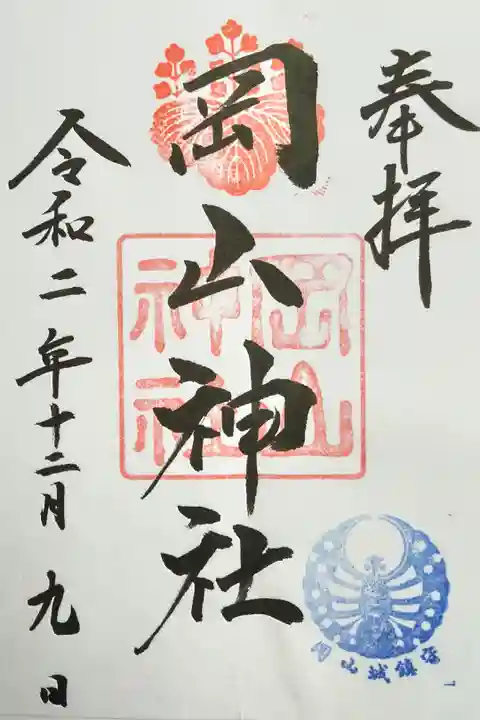 奉拝
岡山神社
岡山
神社
令和二年十二月九日
岡山城鎮守